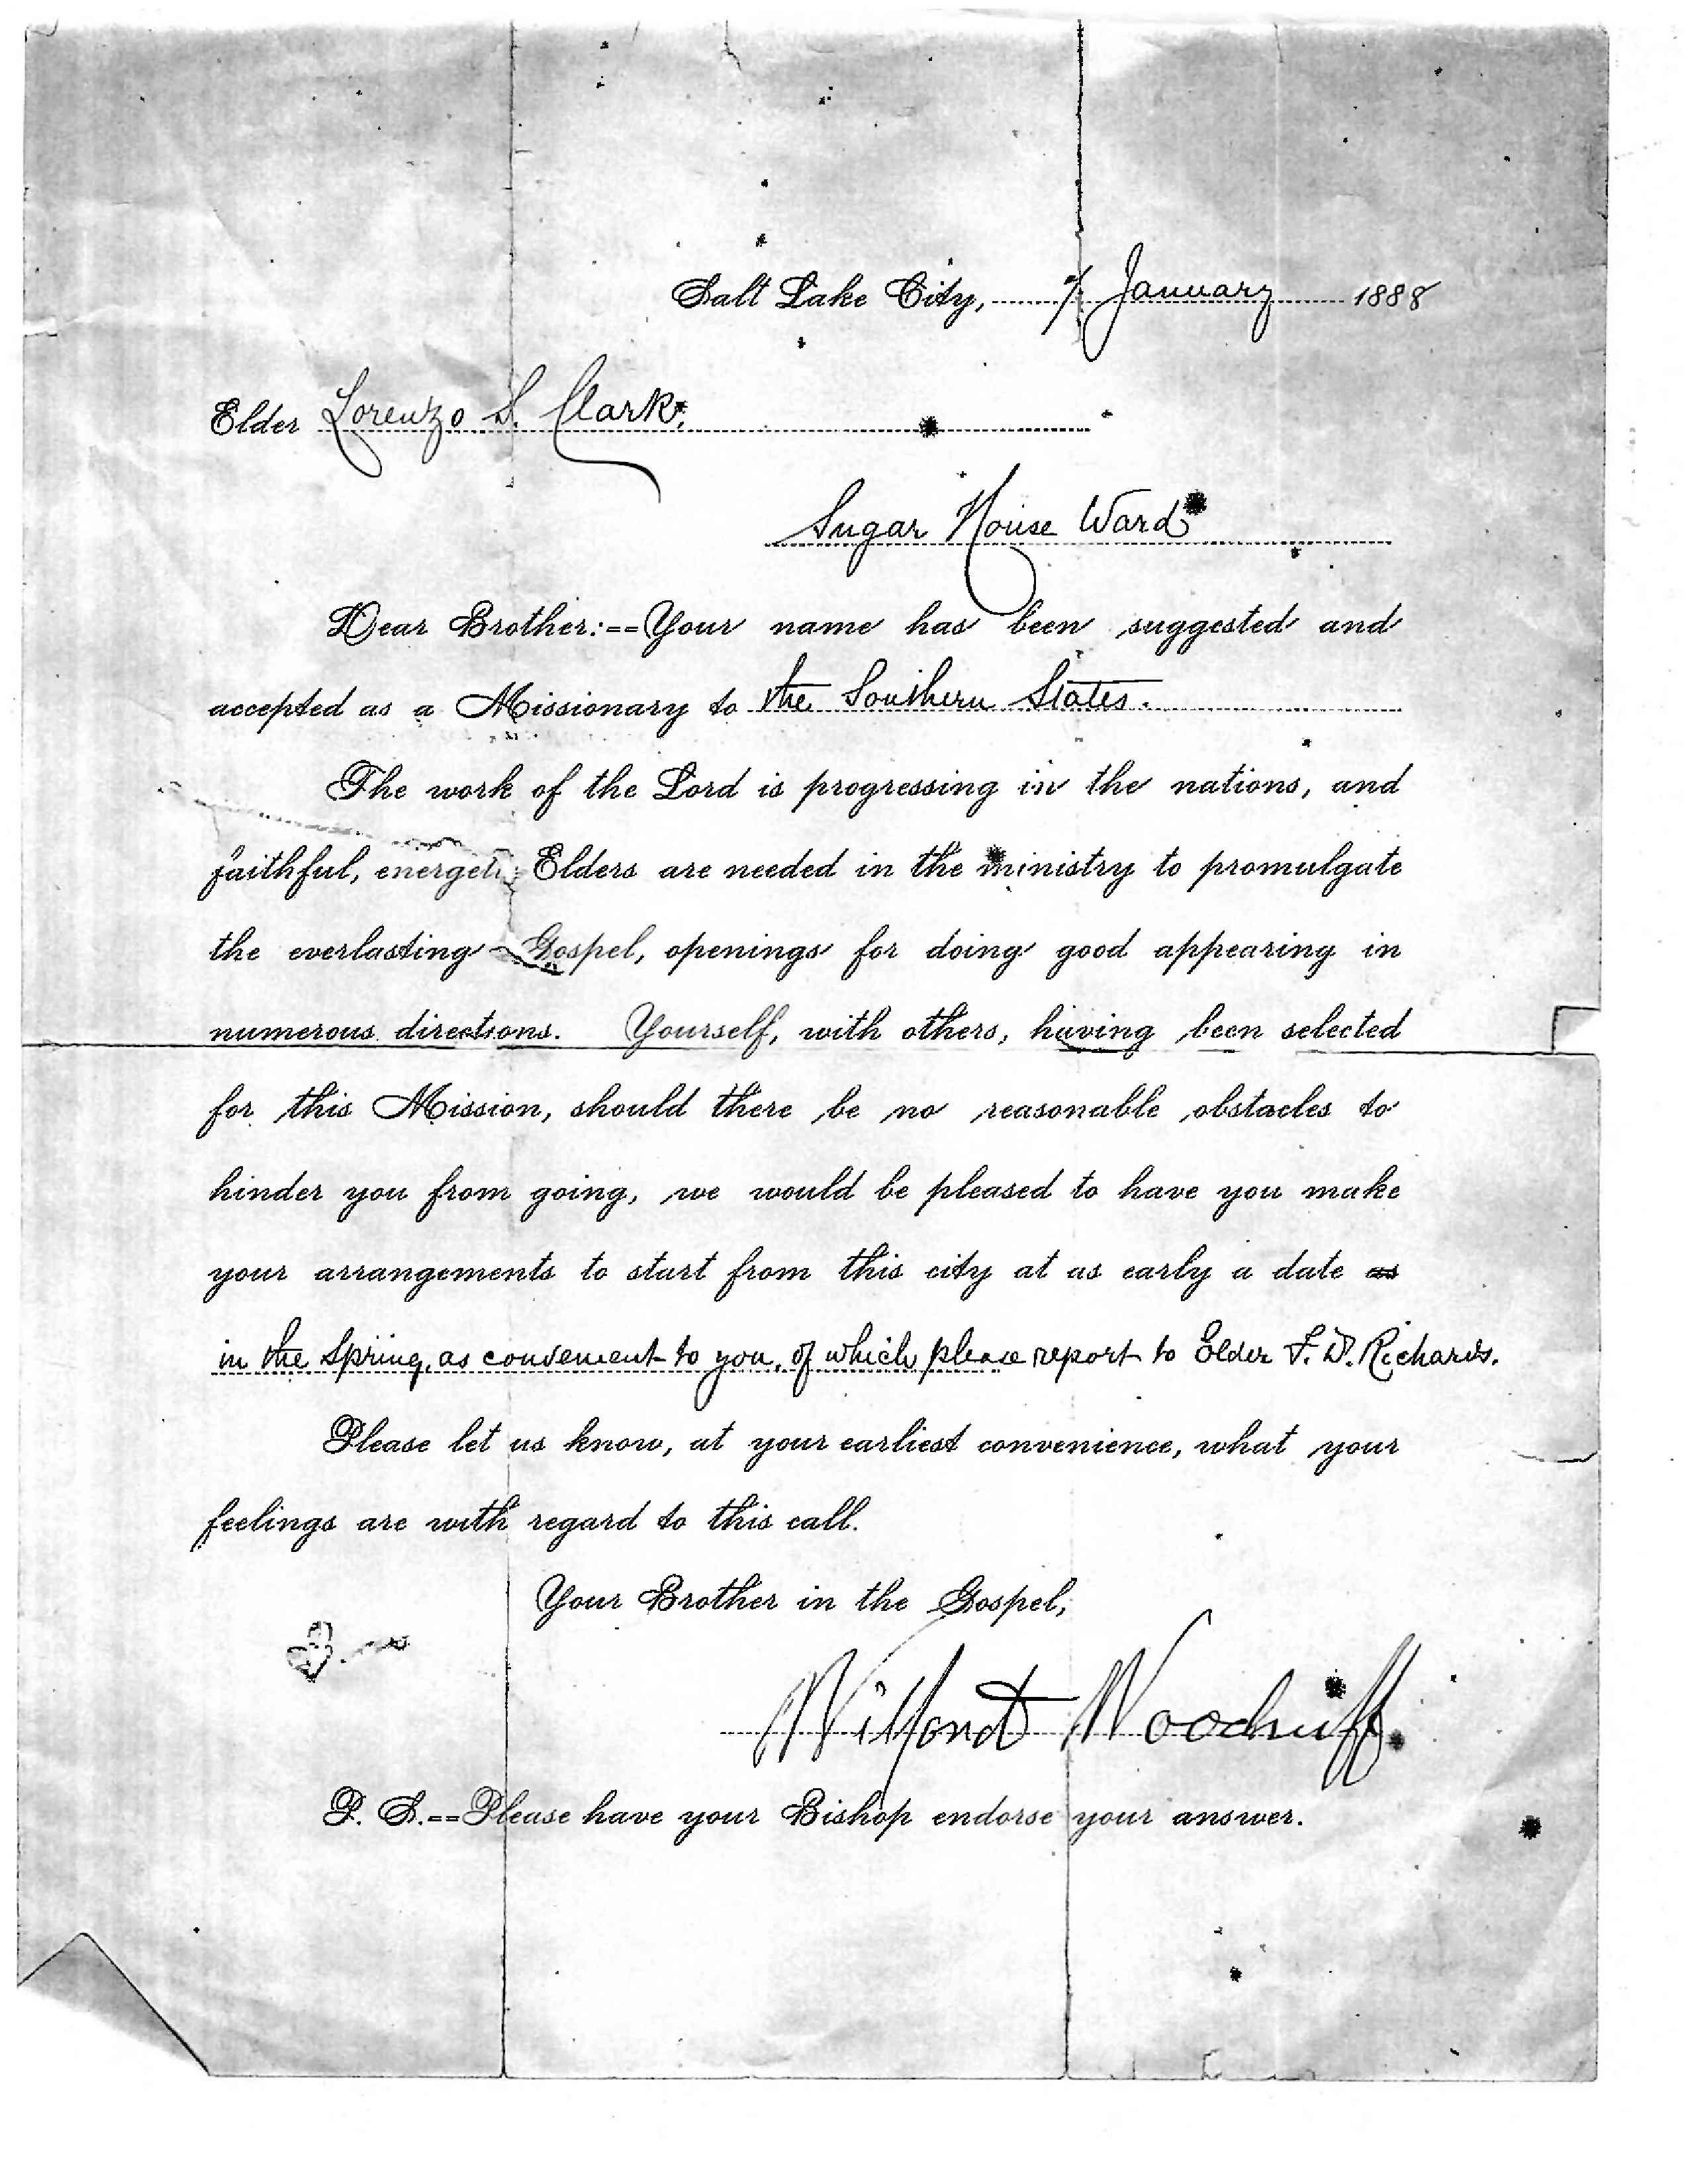 Salt Lake City, January 1888
Elder Lorenzo S. Clark.
Sugar House Ward
Dear Brother:==Your name has been suggested and
accepted as a Missionary to the Southern States.
The work of the Lord is progressing in the nations, and
faithful, energetic Elders are needed in the ministry to promulgate
the everlasting Gospel, openings for doing good appearing in
numerous directions. Yourself, with others, having been selected
for this Mission, should there be no reasonable obstacles to
hinder you from going, we would be pleased to have you make
your arrangements to start from this city at as early a date as
in the Spring, as convenient to you, of which please report to Elder F. D. Richards.
Please let us know, at your earliest convenience, what your
feelings are with regard to this call.
Your Brother in the Gospel,
Wilford Woodruff.
P. S.==Please have your Bishop endorse your answer.